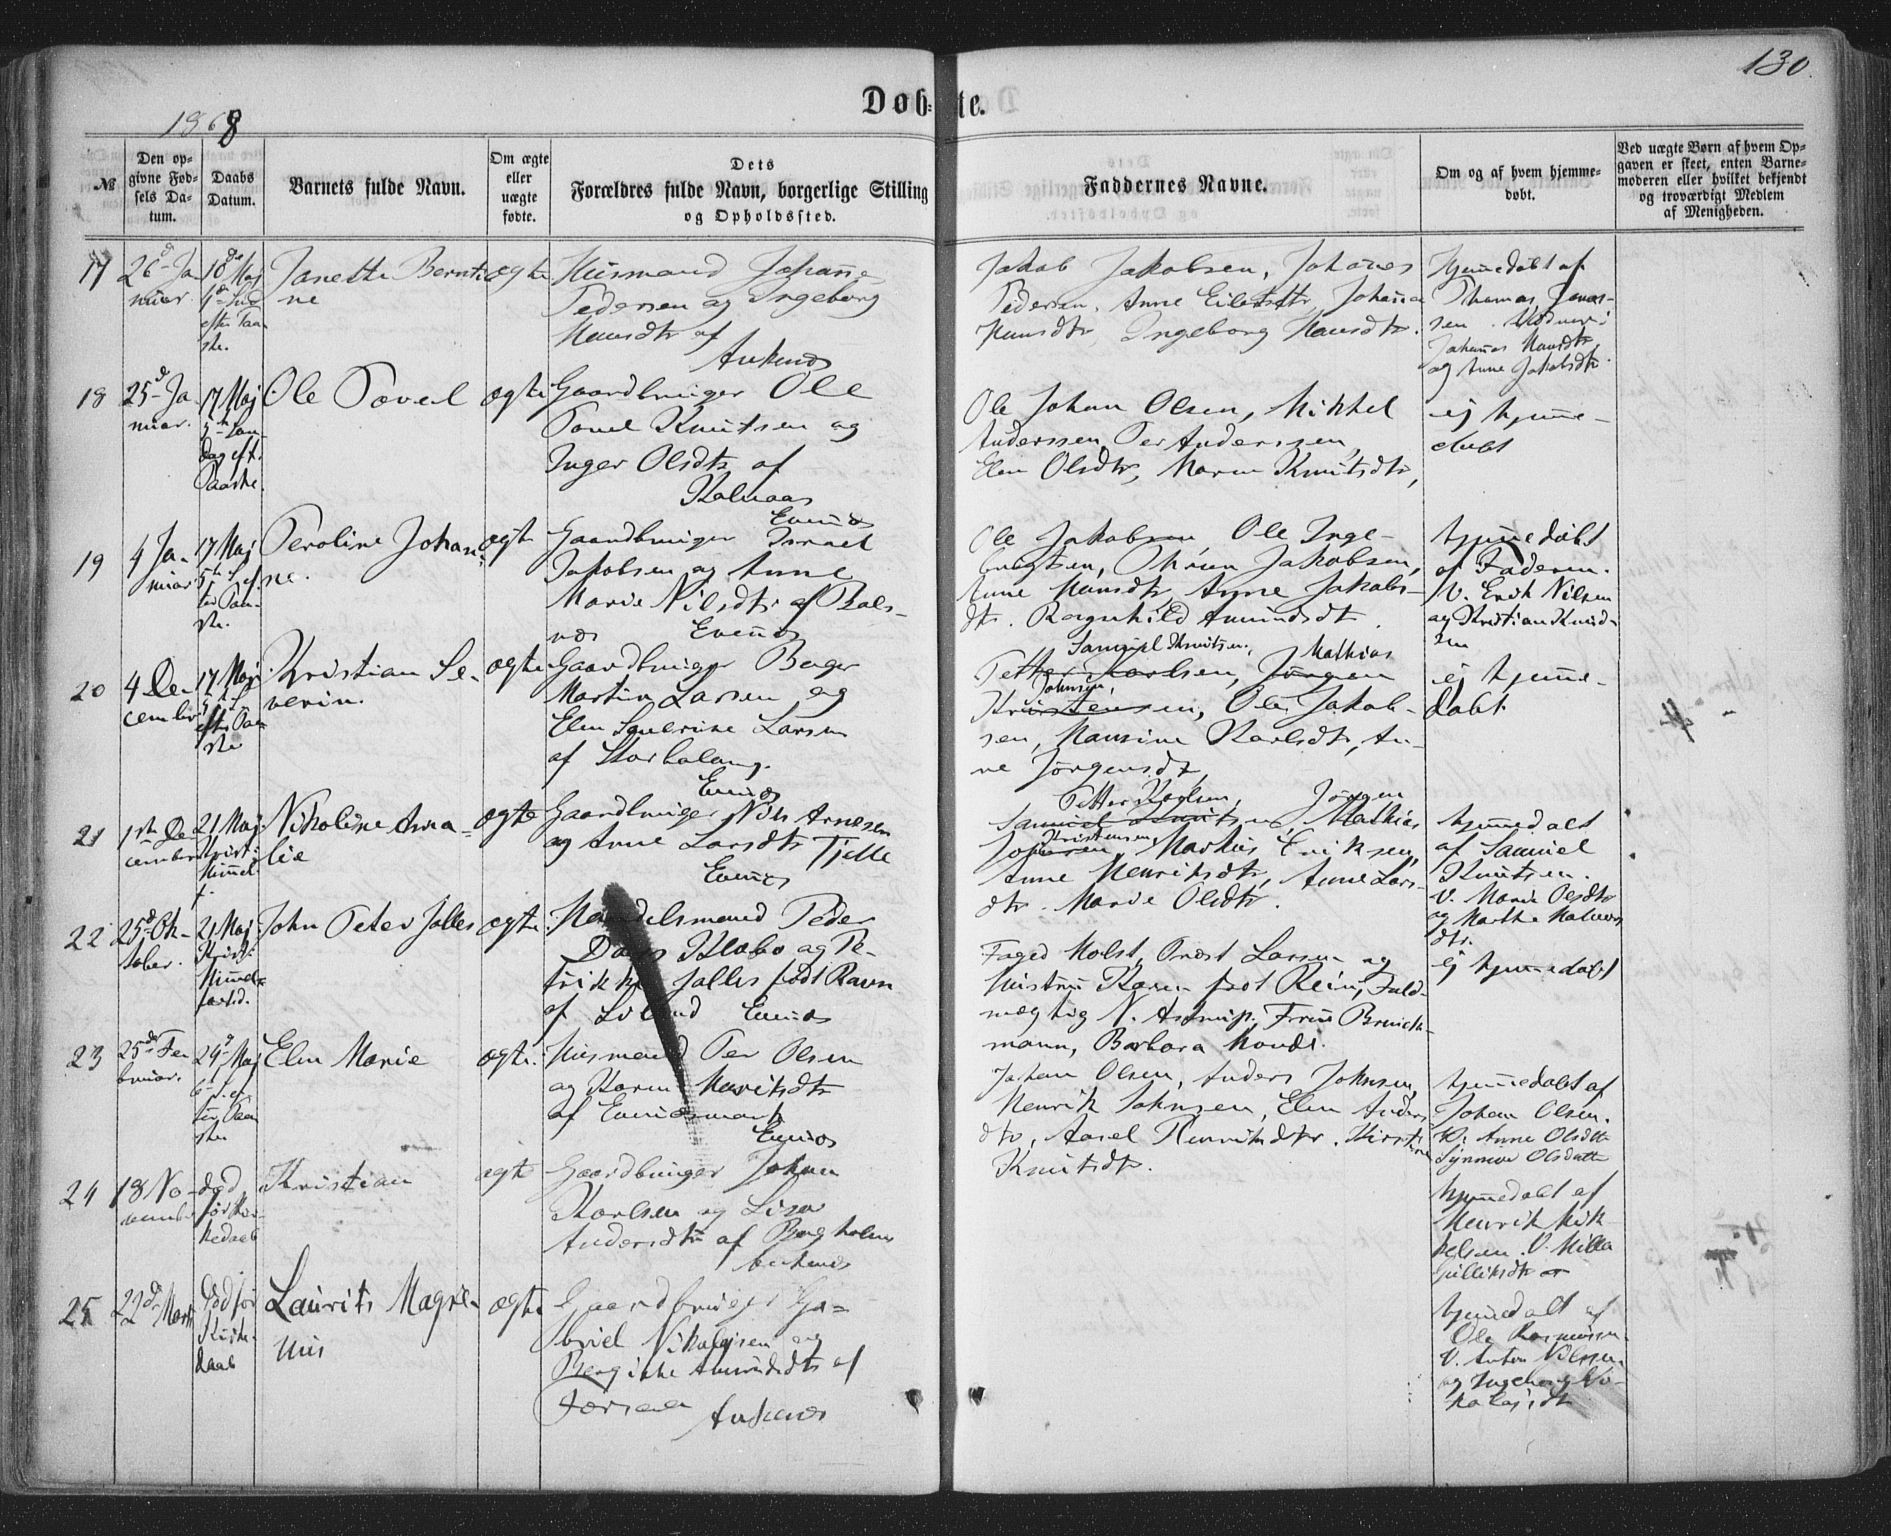 130.
1868
Døb-te.
№
Den op-
givne Fød-
sels Da-
tum.
Daabs
Datum.
Barnets fulde Navn.
Om ægte
eller
uægte
fødte.
Dets
Forældres fulde Navn, borgerlige Stilling
og Opholdssted.
Faddernes Navne.
Om og af hvem hjemme-
døbt.
Ved uægte Børn af hvem Op-
gaven er skeet, enten Barne-
moderen eller hvilket bekjendt
og troværdigt Medlem
af Menigheden.
17
26d Ja-
nuar.
10de Maj
efter Paa-
ske.
Janette Bernti-
ne
ægte
Husmand Johan
Pedersen og Ingeborg
Hansdtr af
Ankenæs
Jakob Jakobsen, Johannes
Pedersen, Anne Eilertsdtr, Johanna
Hansdtr, Ingeborg Hansdtr.
hjemmedøbt af
Thomas Jonas-
sen
Johanna Hansdtr
og Anne Jakobsdtr.
18
25d Ja-
nuar.
17 Maj
5te Søn-
dag eft.
Paaske.
Ole Povel
ægte
Gaardbruger Ole
Povel Knutsen og
Inger Olsdtr af
Evenæs
Ole Johan Olsen, Mikkel
Anderssen, Per Anderssen,
Elen Olsdtr, Maren Knutsdtr,
ej hjemme-
døbt
19
4 Ja-
nuar
17 Maj
5te S. ef-
ter Paa-
ske.
Peroline Johan-
ne.
ægte
Gaardbruger Israel
Jakobsen og Anne
Marie Nilsdtr af Bals-
næs Evenæs
Ole Jakobsen, Ole Inge-
brigtsen, Jakobsen,
Anne Hansdtr, Anne Jakobs-
dtr. Ragnhild Amundsdtr.
hjemmedøbt
af Faderen.
V. Erik Nilsen
og Kristian Knud-
sen
20
4 De-
cember
17 Maj
5te S.
efter Paa-
ske
Kristian Se-
verin.
ægte
Gaardbruger Berger
Martin Larsen og
Elen Severine Larsen
af
Evenæs
Samuel Knutsen, Mathias
Petter Karlsen, Jørgen
Johnsen,
Kristensen, Ole Jakob-
sen, Hansine Karlsdtr, An-
ne Jørgensdtr,
ej hjemme-
døbt
21
1ste De-
cember
21 Maj
Krist:
Himmel-
f.
Nikoline Ama-
lie
ægte
Gaardbruger Nils Arnesen
og Anne Larsdtr Tjelle
Evenæs
Petter Karlsen, Jørgen
Samuel Knutsen, Mathias
Kristensen,
Johnsen, Markus Eriksen,
Anne Henriksdtr, Anne Lars-
dtr. Marie Olsdtr.
hjemmedøbt
af Samuel
Knutsen.
V. Marie Olsdtr
og Marthe
dtr.
22
25d Ok-
tober.
21 Maj
Krist:
Himmel-
fartsd.
John Peter Jalles
ægte
Handelsmand Peder
Klæbo og Pe-
trikke Jalles født Ravn
af Evenæs
Foged Holst, Provst Larsen og
Hustru Karen født Rein, Fuld-
mægtig N. Astrup, Frøken
mann, Barbara
ej hjemmedøbt
23
25d Fe-
bruar.
24d Maj
6 S. ef-
ter Paa-
ske
Elen Marie
ægte.
Husmand Per Olsen
og Karen Henriksdtr
af Evenesmark
Evenæs
Johan Olsen, Anders Johnsen,
Henrik Johnsen, Elen Anders-
dtr, Aasel Henriksdtr. Kirstine
Knutsdtr.
hjemmedøbt af
Johan Olsen.
V. Anne Olsdtr
Synnøve Olsdatter
24
18 No-
vember
død
før Kir-
kedaab
Kristian
ægte
Gaardbruger Johan
Karlsen og Lisa
Andersdtr af Bergholm
Ankenæs
hjemmedøbt af
Henrik Mik-
kelsen. V. Milla
Gulliksdtr
25
22d Marts
død før
Kirke-
daab
Laurits Magni-
nus
ægte
Gaardbruger Ga-
briel Nikolajsen og
Bergitte Amundsdtr af
Ankenæs
hjemmedøbt af
Ole Rasmussen.
V. Anton Nilssen.
og Ingeborg Ni-
kolajsdtr